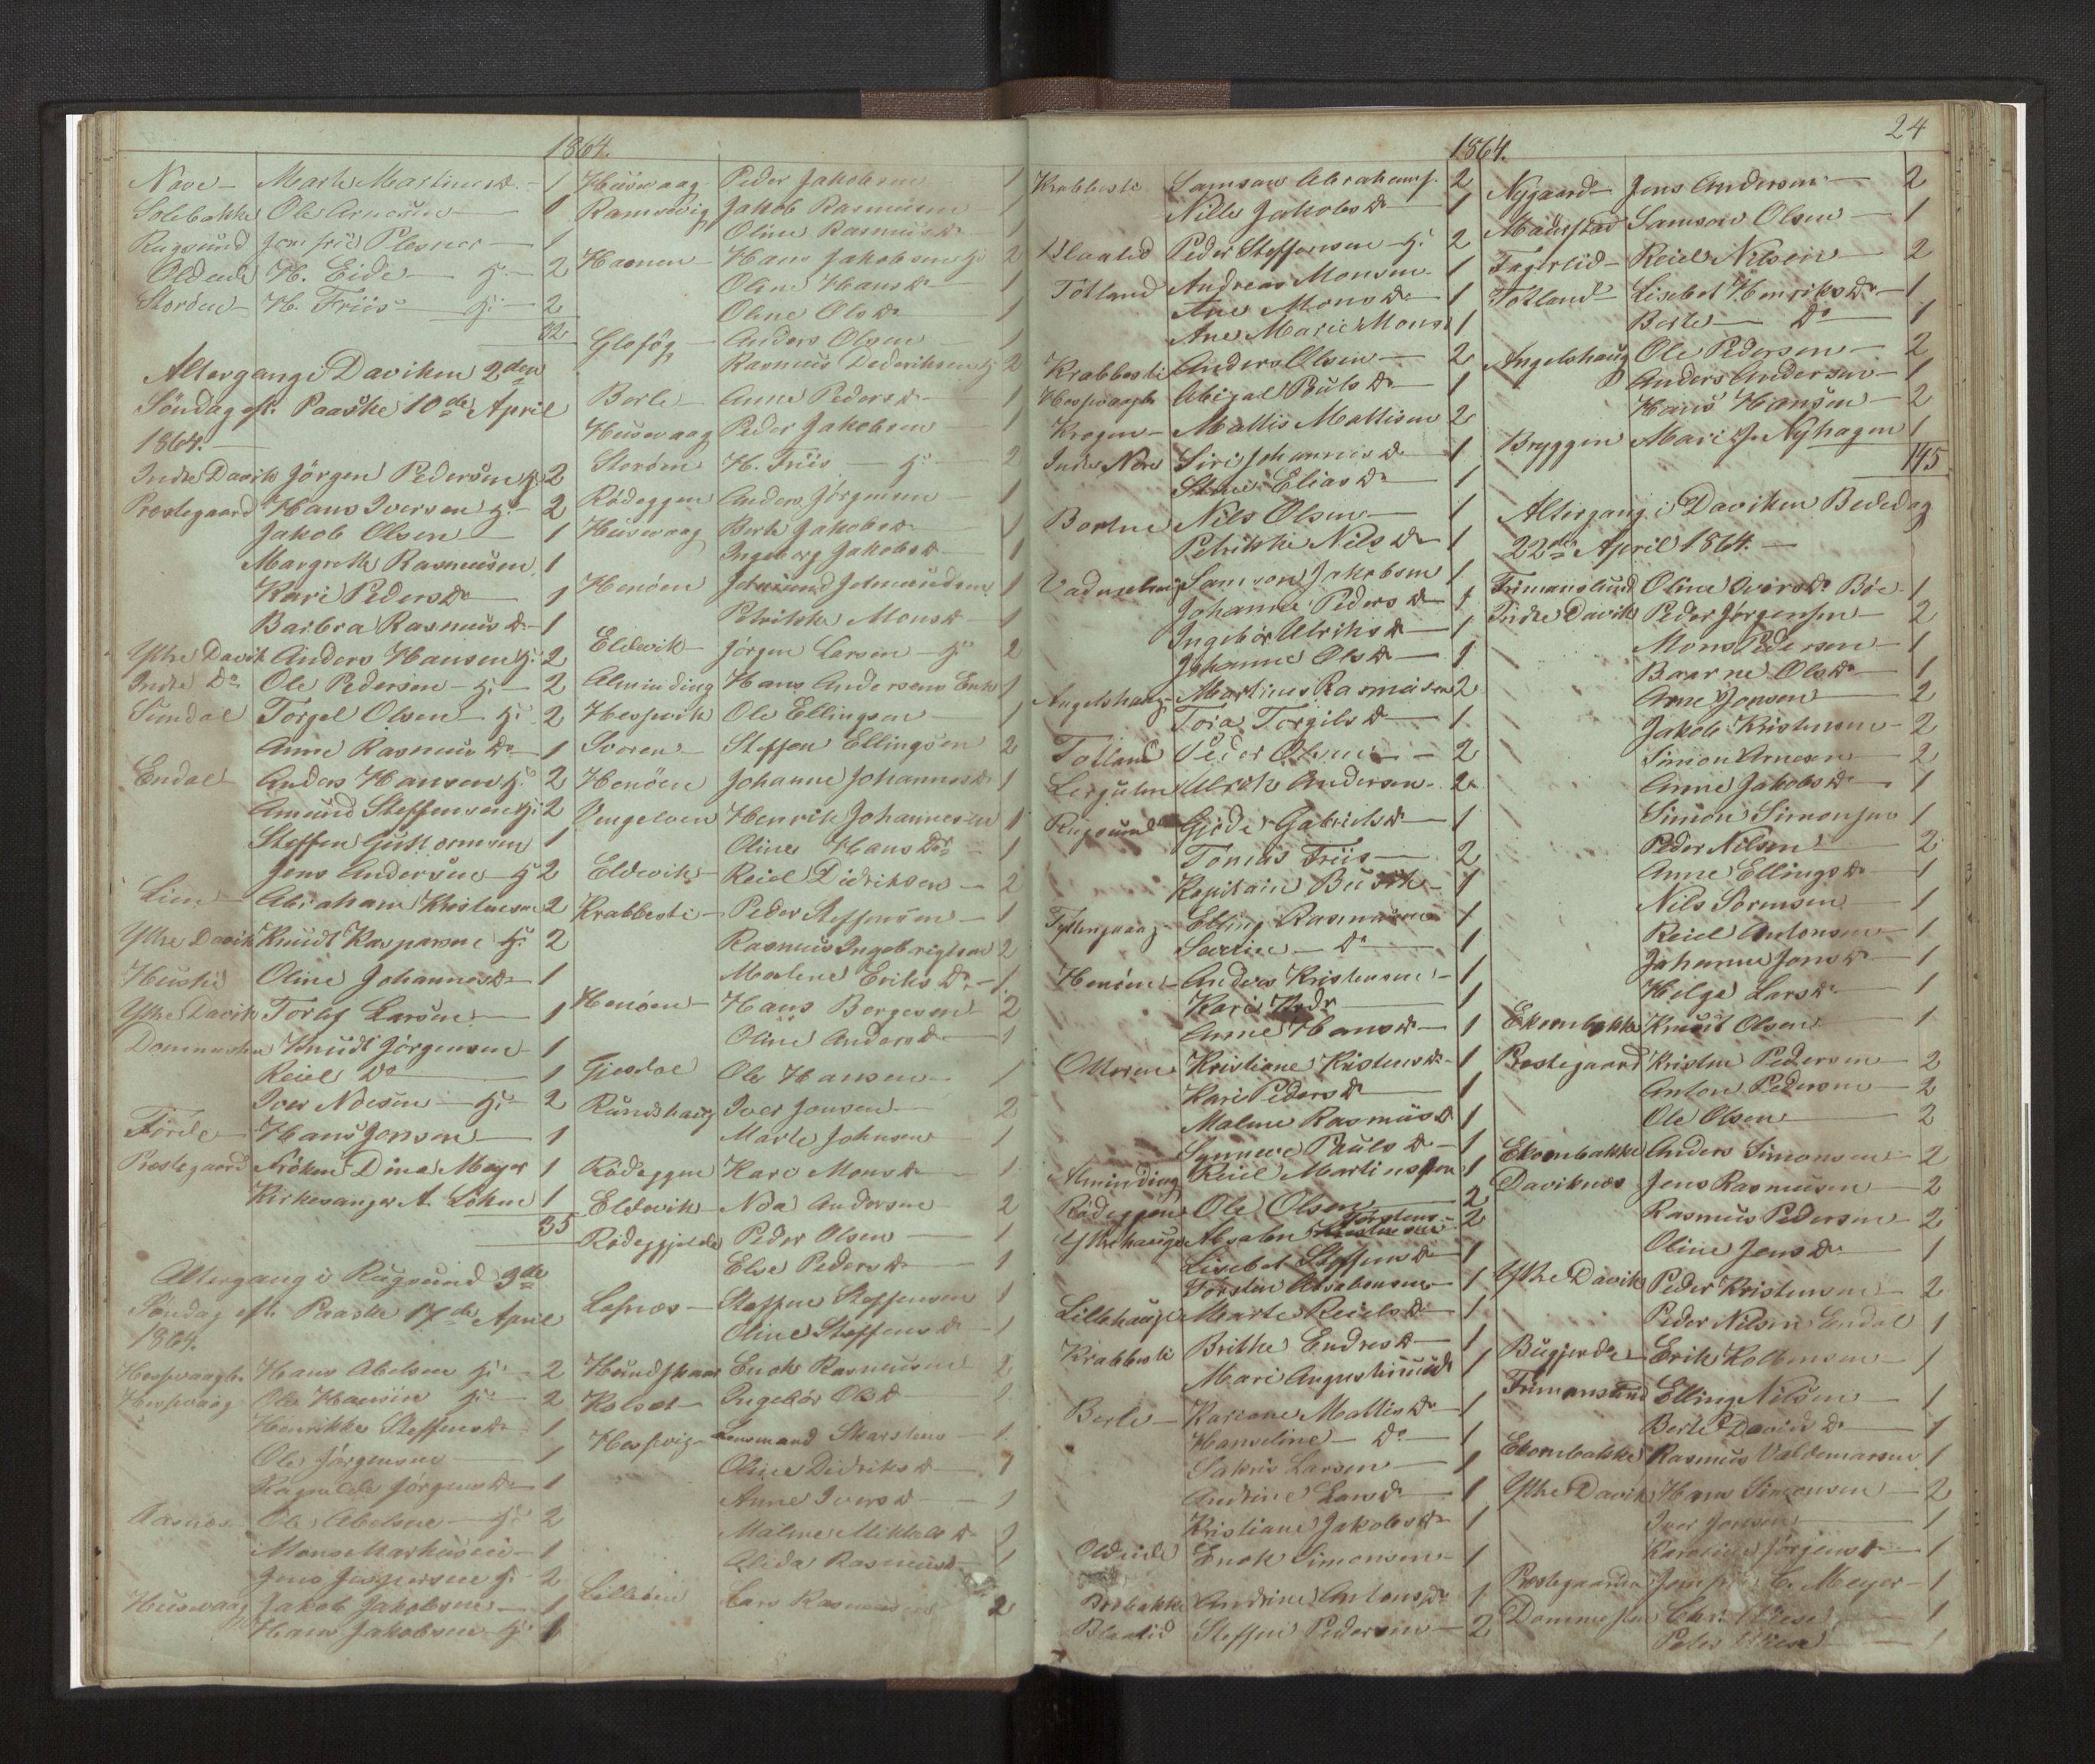 1864.
Nave - Marte Martinusd. - 1
Solebakke Ole Arnesen - 1
Rugsund Jomfrü Plesner - 1
Oldeide H. Eide - Hu. - 2
Storöen - H. Friis - Hu. - 2
62
Altergang i Daviken 2den
Söndag eft. Paaske 10de April
1864.
Indre Davik Jörgen Pedersen H. 2
Prestegaard Hans Iversen H. - 2
Jakob Olsen - 1
Margrethe Rasmusen 1
Kari Pedersdr 1
Barbra Rasmusdr - 1
Ythre Davik Anders Hansen H. 2
Indre Do Ole Pedersen - H. - 2
Sundal Torgel Olsen - H. 2
Anne Rasmusdr - 1
Endal Anders Hansen H. 2
Amund Steffensen H. 2
Steffen Guttormsen 1
Jens Andersen - H 2
Lien - Abraham Kristensen 2
Ythre Davik Knudt Kasparsen H. 2
Oline Johannesdr - 1
Ythre Davik Torlef Larsen - 1
Knudt Jörgensen - 1
Reiel Do 1
Iver Noesen - H. - 2
Förde - Hans Jonsen - 1
Prestegaard Fröken Dina Meyer 1
Kirkesanger A. Löken 1
35
Altergang i Rugsund 3de
Söndag eft. Paaske 17de April
1864.
Hans Abelsen H. - 2
Hessevaag Ole Hansen H. - 2
Henrikke Steffensdr - 1
Ole Jörgensen - 1
Ragnilde Jörgensdr - 1
Aasnes Ole Abelsen - H. 2
Mons Markusen - 1
Jens Jespersen H. - 2
Husevaag Jakob Jakobsen - 1
Hans Jakobsen H. 1
Husevaag Peder Jakobsen 1
Ramsevig Jakob Rasmusen 1
Oline Rasmusdr - 1
Hamnen - Hans Jakobsen H. 2
Oline Hansdr - 1
Oline Olsdr 1
Anders Olsen - 1
Rasmus Dederiksen H 2
Berle - Anne Pedersdr - 1
Husevaag Peder Jakobsen - 1
Storöen H. Friis - H. - 2
Rödeggen Anders Jörgensen - 1
Husevaag Berte Jakobsdr 1
Ingeborg Jakobsdr - 1
Henöen 1
Petrikke Monsdr - 1
Eldevik - Jörgen Larsen - H. 2
Alminding Hans Andersens Enke 1
Hessevik Ole Ellingsen - 1
Steffen Ellingsen 2
Henöen Johanne Johannesdr 1
Vengelven Henrik Johannesen 1
Oline Hansdr - 1
Eldevik - Reiel Didriksen - 2
Krabbesti - Peder Steffensen - 1
Rasmus Ingebrigtsen 2
Malene Eriksdr - 1
Henöen - Hans Börgesen 2
Oline Andersdr - 1
Gjesdal Ole Hansen - 1
Rundehaug Iver Jonsen - 2
Marte Johnsen 1
Rödeggen Kari Monsdr - 1
Eldevik - Nóa Andersen - 2
Peder Olsen - 1
Else Pedersdr - 1
Lefnæs - Steffen Steffensen 1
Oline Steffensdr - 1
Hundskaar Enok Rasmusen 2
Kolset - Ingebör Olsd 1
Hessevig - Lensmand Skarstein - 1
Oline Didriksdr - 1
Anne Iversd - 1
Malene Mikkelsdr 1
Alida Rasmusd - 1
Lilleöen Lars Rasmusen 2
24
1864.
Krabbesti Samson Abrahams. 2
Nille Jakobsdr 1
Blaalid Peder Steffensen - H. 2
Totland Andreas Monsen - 1
Ane Monsdr - 1
Ane Marie Mons 1
Krabbesti Anders Olsen - 2
Abigal Pauls dr - 1
Krogen - Mattis Mattisen 2
Indre Nore Siri Johannisdr - 1
Stine Eliasdr 1
Bortne Nils Olsen - 1
Petrikke Nils Dr 1
Samson Jakobsen 1
Johanne Pedersdr 1
Ingebör Ulriksdr - 1
Johanne Olsdr - 1
Angelshaug - Martinus Rasmusen 2
Toia Torgilsdr - 1
Totland Peder Olsen - 2
Leirgulen Ulrik Andersen - 2
Rugsund Gjöde Gabrielsdr - 1
Tomas Friis - 2
Kapitain Busch - 1
Elling Rasmusen 1
Do 1
Henöen - Anders Kristensen - 1
Kari 1
Anne Hansdr - 1
Otteren Kristiane Kristensdr - 1
Kari Pedersdr 1
Malene Rasmusdr 1
Synneve Paulsdr - 1
Alminding Reiel Martinussen 1
Rödeggen Ole Olsen 2
Ytrehauge Absalon Torstens - 2
Lisebet Steffensdr 1
Torsten Absalonsen - 1
Lillehauge Marte Reielsdr - 1
Krabbesti Brithe Endresdr - 1
Mari Augustinusdr 1
Berle - Kariane Mattisdr - 1
Hanseline - Do - 1
Sakris Larsen - 1
Andrine Larsdr - 1
Kristiane Jakobsdr 1
Oldeide Enok Simonsen - 1
Andrine Antonsdr 1
Blaalid Steffen Pedersen - 2
1864.
Nygaard - Jens Andersen - 2
Maurstad Samson Olsen - 1
Fagerlid - Reiel Nilsen - 2
Totland Lisebet Henriksdr - 1
Berte - Do - 1
Angelshaug Ole Pedersen - 2
Anders Andersen - 1
Hans Hansen - 2
Bryggen Mari J. Nyhagen 1
145
Altergang i Daviken Bededag
22de April 1864. -
Frimanslund Oline Iversdr Böe - 1
Indre Davik Peder Jörgensen - 2
Mons Pedersen - 1
Olsdr - 1
Arne Jonsen 2
Jakob Kristensen - 2
Simon Arnesen - 2
Anne Jakobsdr - 1
Simon Simonsen 1
Peder Nilsen - 2
Anne Ellingsdr - 1
Nils Sörensen - 1
Reiel Antonsen - 1
Johanne Jonsdr - 1
Helge Larsdr - 1
Ekornbakke Knudt Olsen 1
Prestegaard Kristen Pedersen - 2
Anton Pedersen - 2
Ole Olsen 2
Ekornbakke Anders Simonsen - 2
Daviknes Jens Rasmusen - 2
Rasmus Pedersen - 2
Oline Jensdr - 1
Ythre Davik Peder Kristensen - 2
Peder Nilsen Endal 1
Erik Kolbensen - 1
Frimanslund Elling Nilsen - 1
Berte Davidsdr - 1
Ekornbakke Rasmus Valdemarsen 1
Ythre Davik Hans Simonsen - 2
Iver Jonsen 1
Karoline Jörgensdr - 1
Prestegaarden Jomfru C. Meyer - 1
Chr. Wiese - 1
Peter Wiese - 1